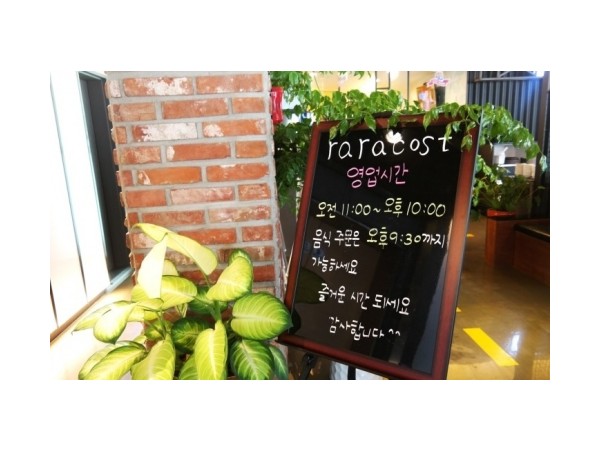 raracost
영업시간
오전 11:00~오후 10:00
음식 주문은 오후9:30까지
가능하세요
즐거운 시간 되세요
감사합니다^^